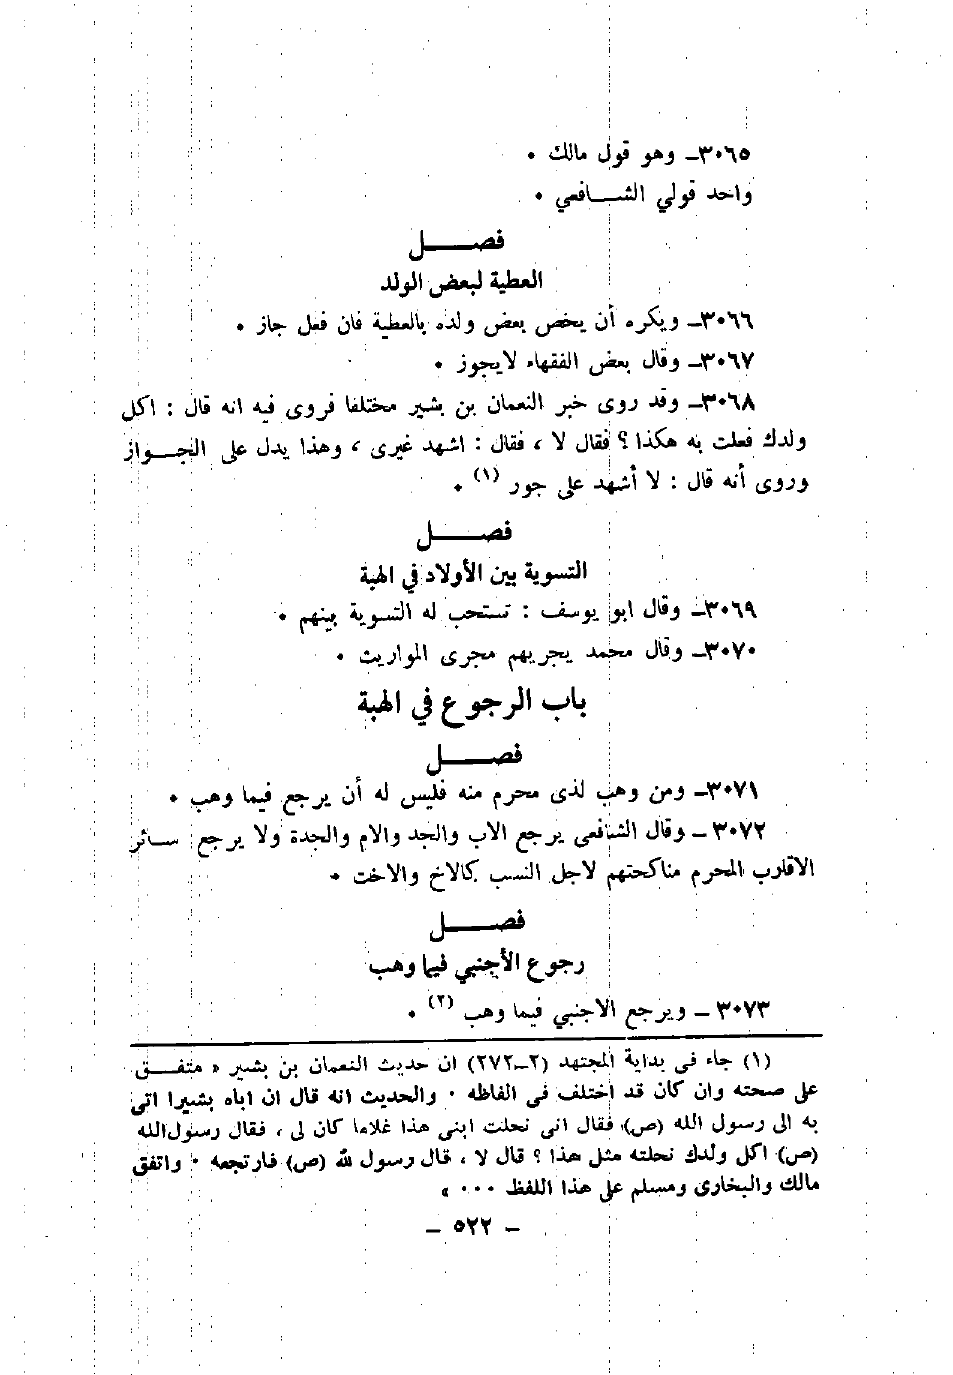 ٣٠٦٥ـ وهو قول مالك ٠
واحد قولي الشـــافعي ٠
فصـــــل
العطية لبعض الولد
٣٠٦٦ـ ويكره أن يخص بعض ولده بالعطية فان فعل جاز ٠
٣٠٦٧ـ وقال بعض الفقهاء لايجوز ٠
٣٠٦٨ـ وقد روى خبر النعمان بن بشير مختلفا فروى فيه انه قال : اكل
ولدك فعلت به هكذا ؟ فقال لا ، فقال : اشهد غيرى ، وهذا يدل على الجـــواز
وروى أنه قال : لا أشهد على جور (١) ٠
فصـــــل
التسوية بين الأولاد في الهبة
٣٠٦٩ـ وقال ابو يوسف : تستحب له التسوية بينهم ٠
٣٠٧٠ـ وقال محمد يجريهم مجرى المواريث ٠
باب الرجوع في الهبة
فصـــــل
٣٠٧١ـ ومن وهب لذى محرم منه فليس له أن يرجع فيما وهب ٠
٣٠٧٢ ـ وقال الشافعى يرجع الاب والجد والام والجدة ولا يرجع ســائر
الاقارب المحرم مناكحتهم لاجل النسب كالاخ والاخت ٠
فصـــــل
رجوع الأجنبي فيما وهب
٣٠٧٣ ـ ويرجع الاجنبي فيما وهب (٢) ٠
(١) جاء فى بداية المجتهد (٢ـ٢٧٢) ان حديث النعمان بن بشير « متفـــق
على صحته وان كان قد اختلف فى الفاظه ٠ والحديث انه قال ان اباه بشيرا اتى
به الى رسول الله (ص) فقال انى نحلت ابنى هذا غلاما كان لى ، فقال رسول الله
(ص) اكل ولدك نحلته مثل هذا ؟ قال لا ، قال رسول لله (ص) فارتجعه ٠ واتفق
مالك والبخارى ومسلم على هذا اللفظ ٠٠٠ »
ـ ٥٢٢ ـ